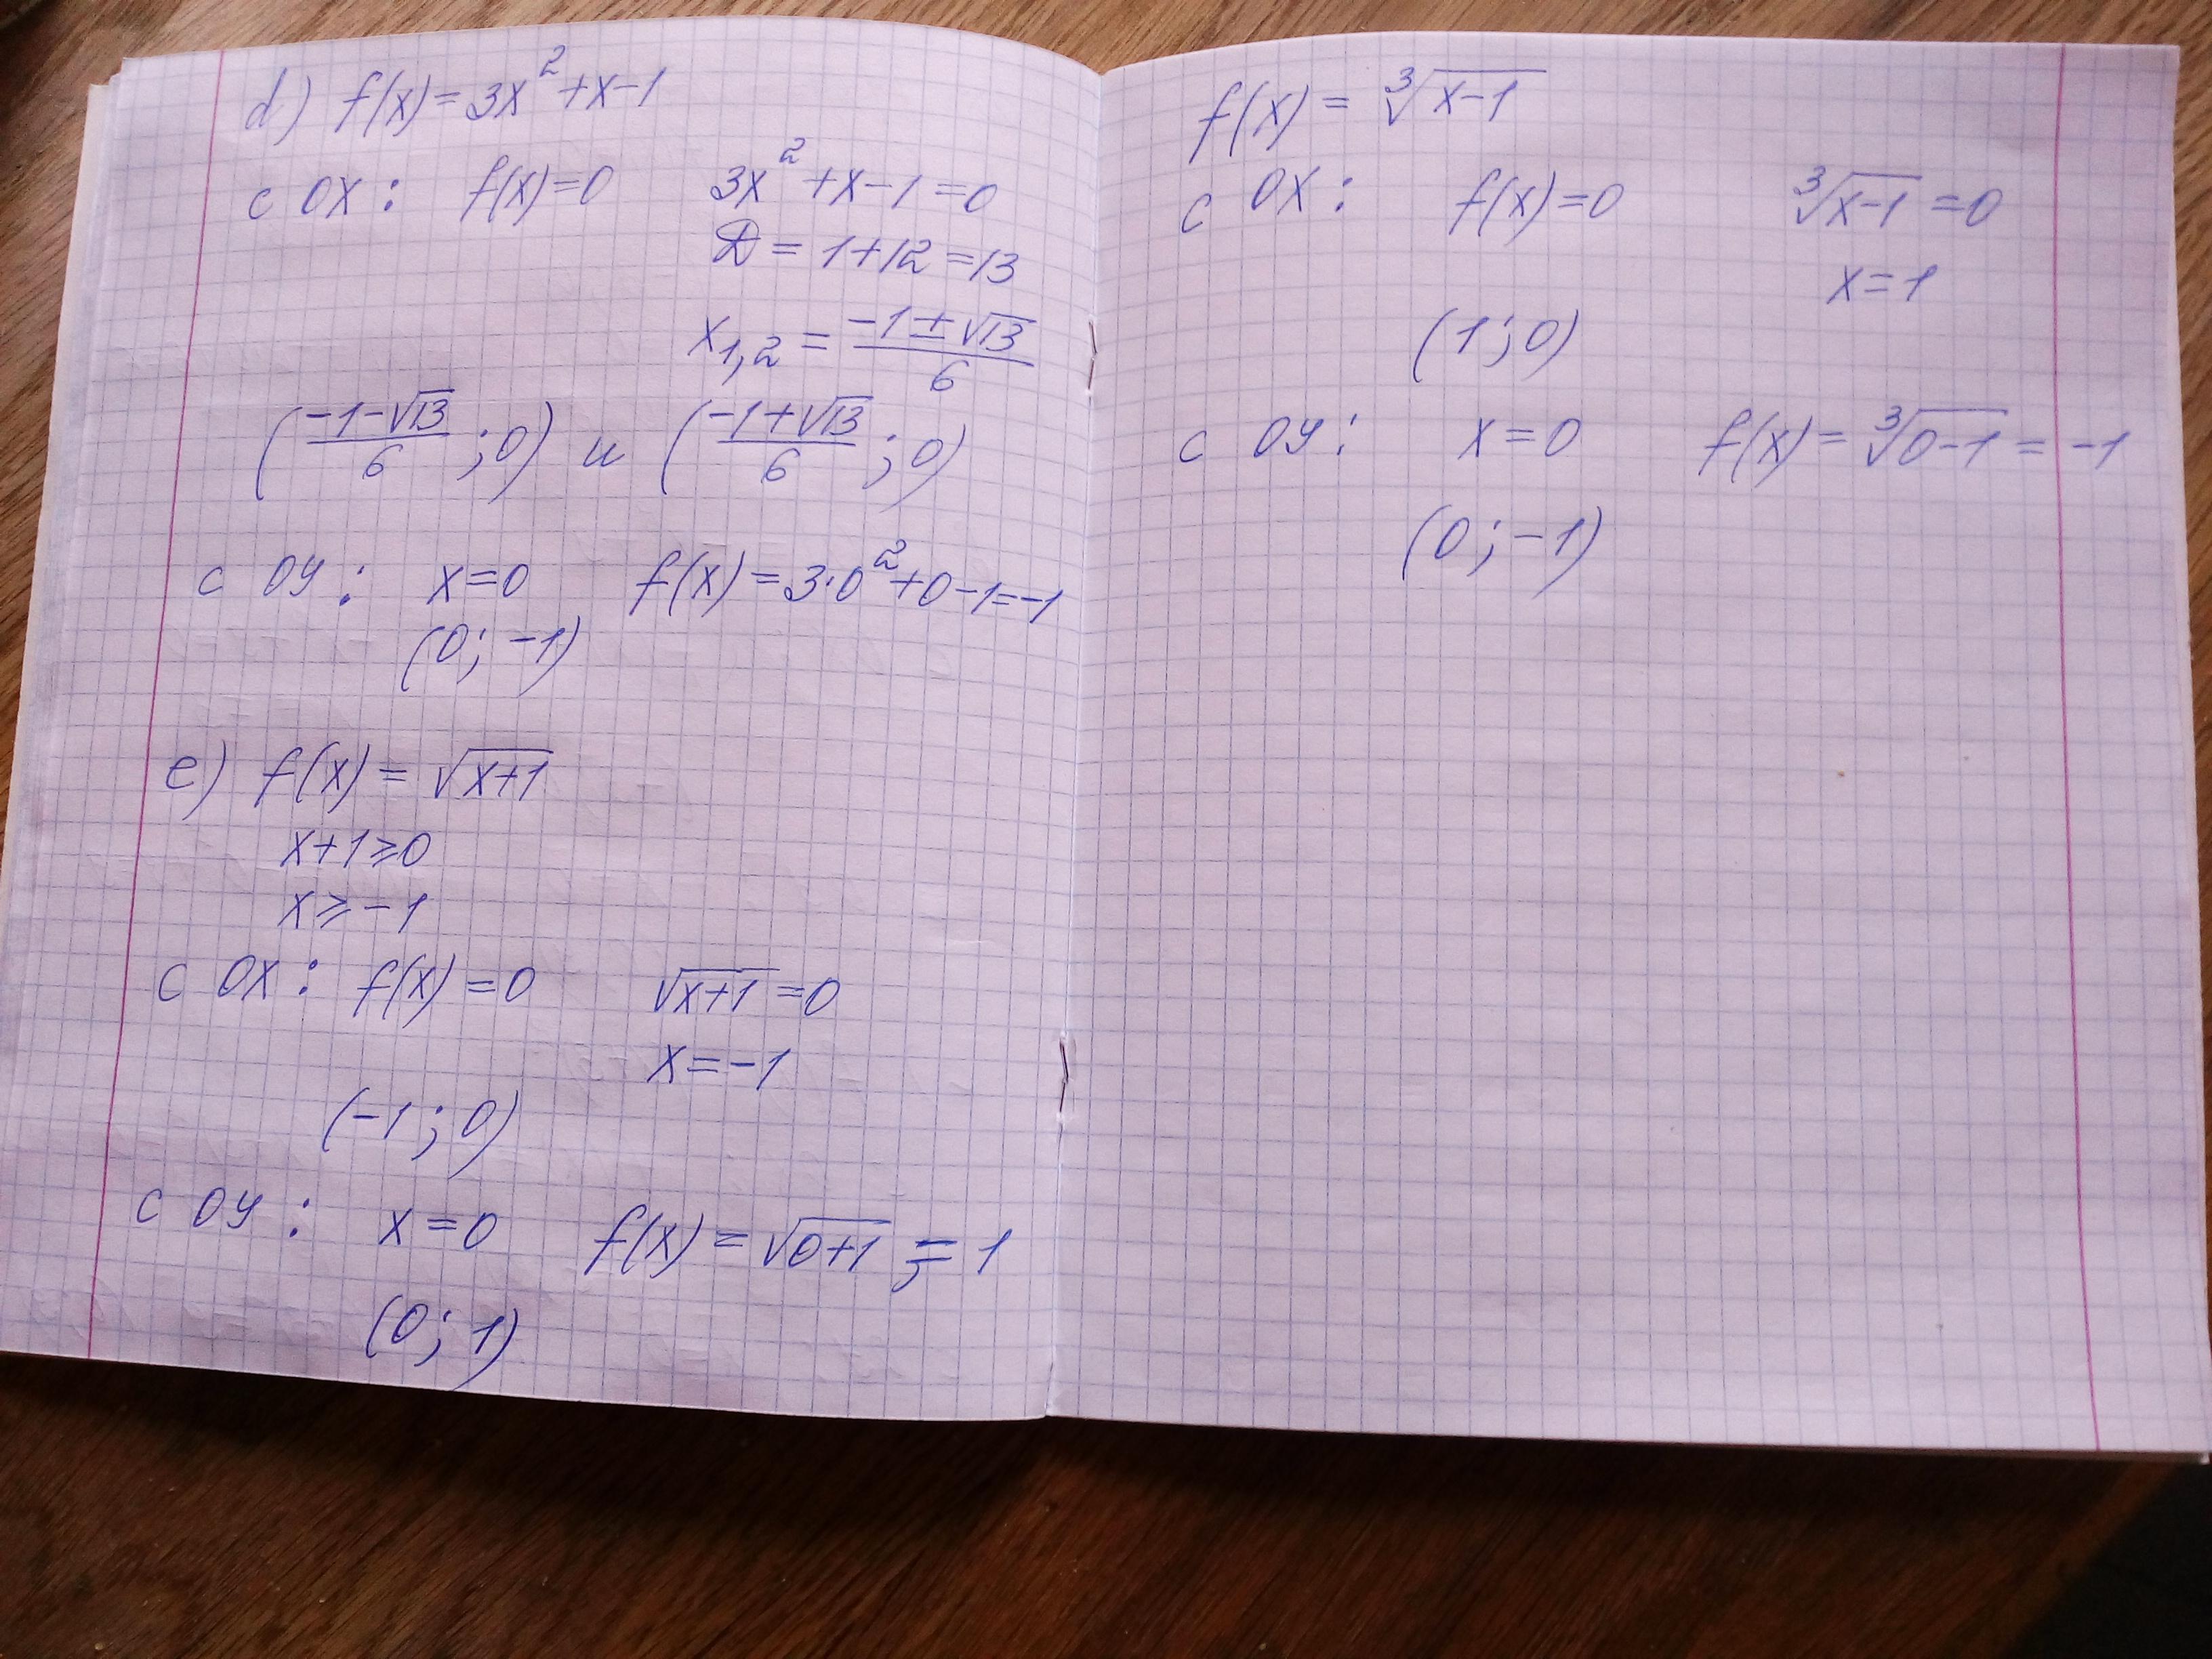 d) f(x) = 3x² + x - 1
с OX : f(x) = 0 3x² + x - 1 = 0
D = 1 + 12 = 13
x₁,₂ = (-1 ± √13)/6
((-1 - √13)/6 ; 0) и ((-1 + √13)/6 ; 0)
с OY : x = 0 f(x) = 3·0² + 0 - 1 = -1
(0; -1)
e) f(x) = √(x+1)
x + 1 ⩾ 0
x ⩾ -1
с OX : f(x) = 0 √(x+1) = 0
x = -1
(-1 ; 0)
с OY : x = 0 f(x) = √(0+1) = 1
(0; 1)
f(x) = ∛(x-1)
с OX : f(x) = 0 ∛(x-1) = 0
x = 1
(1 ; 0)
с OY : x = 0 f(x) = ∛(0-1) = -1
(0 ; -1)